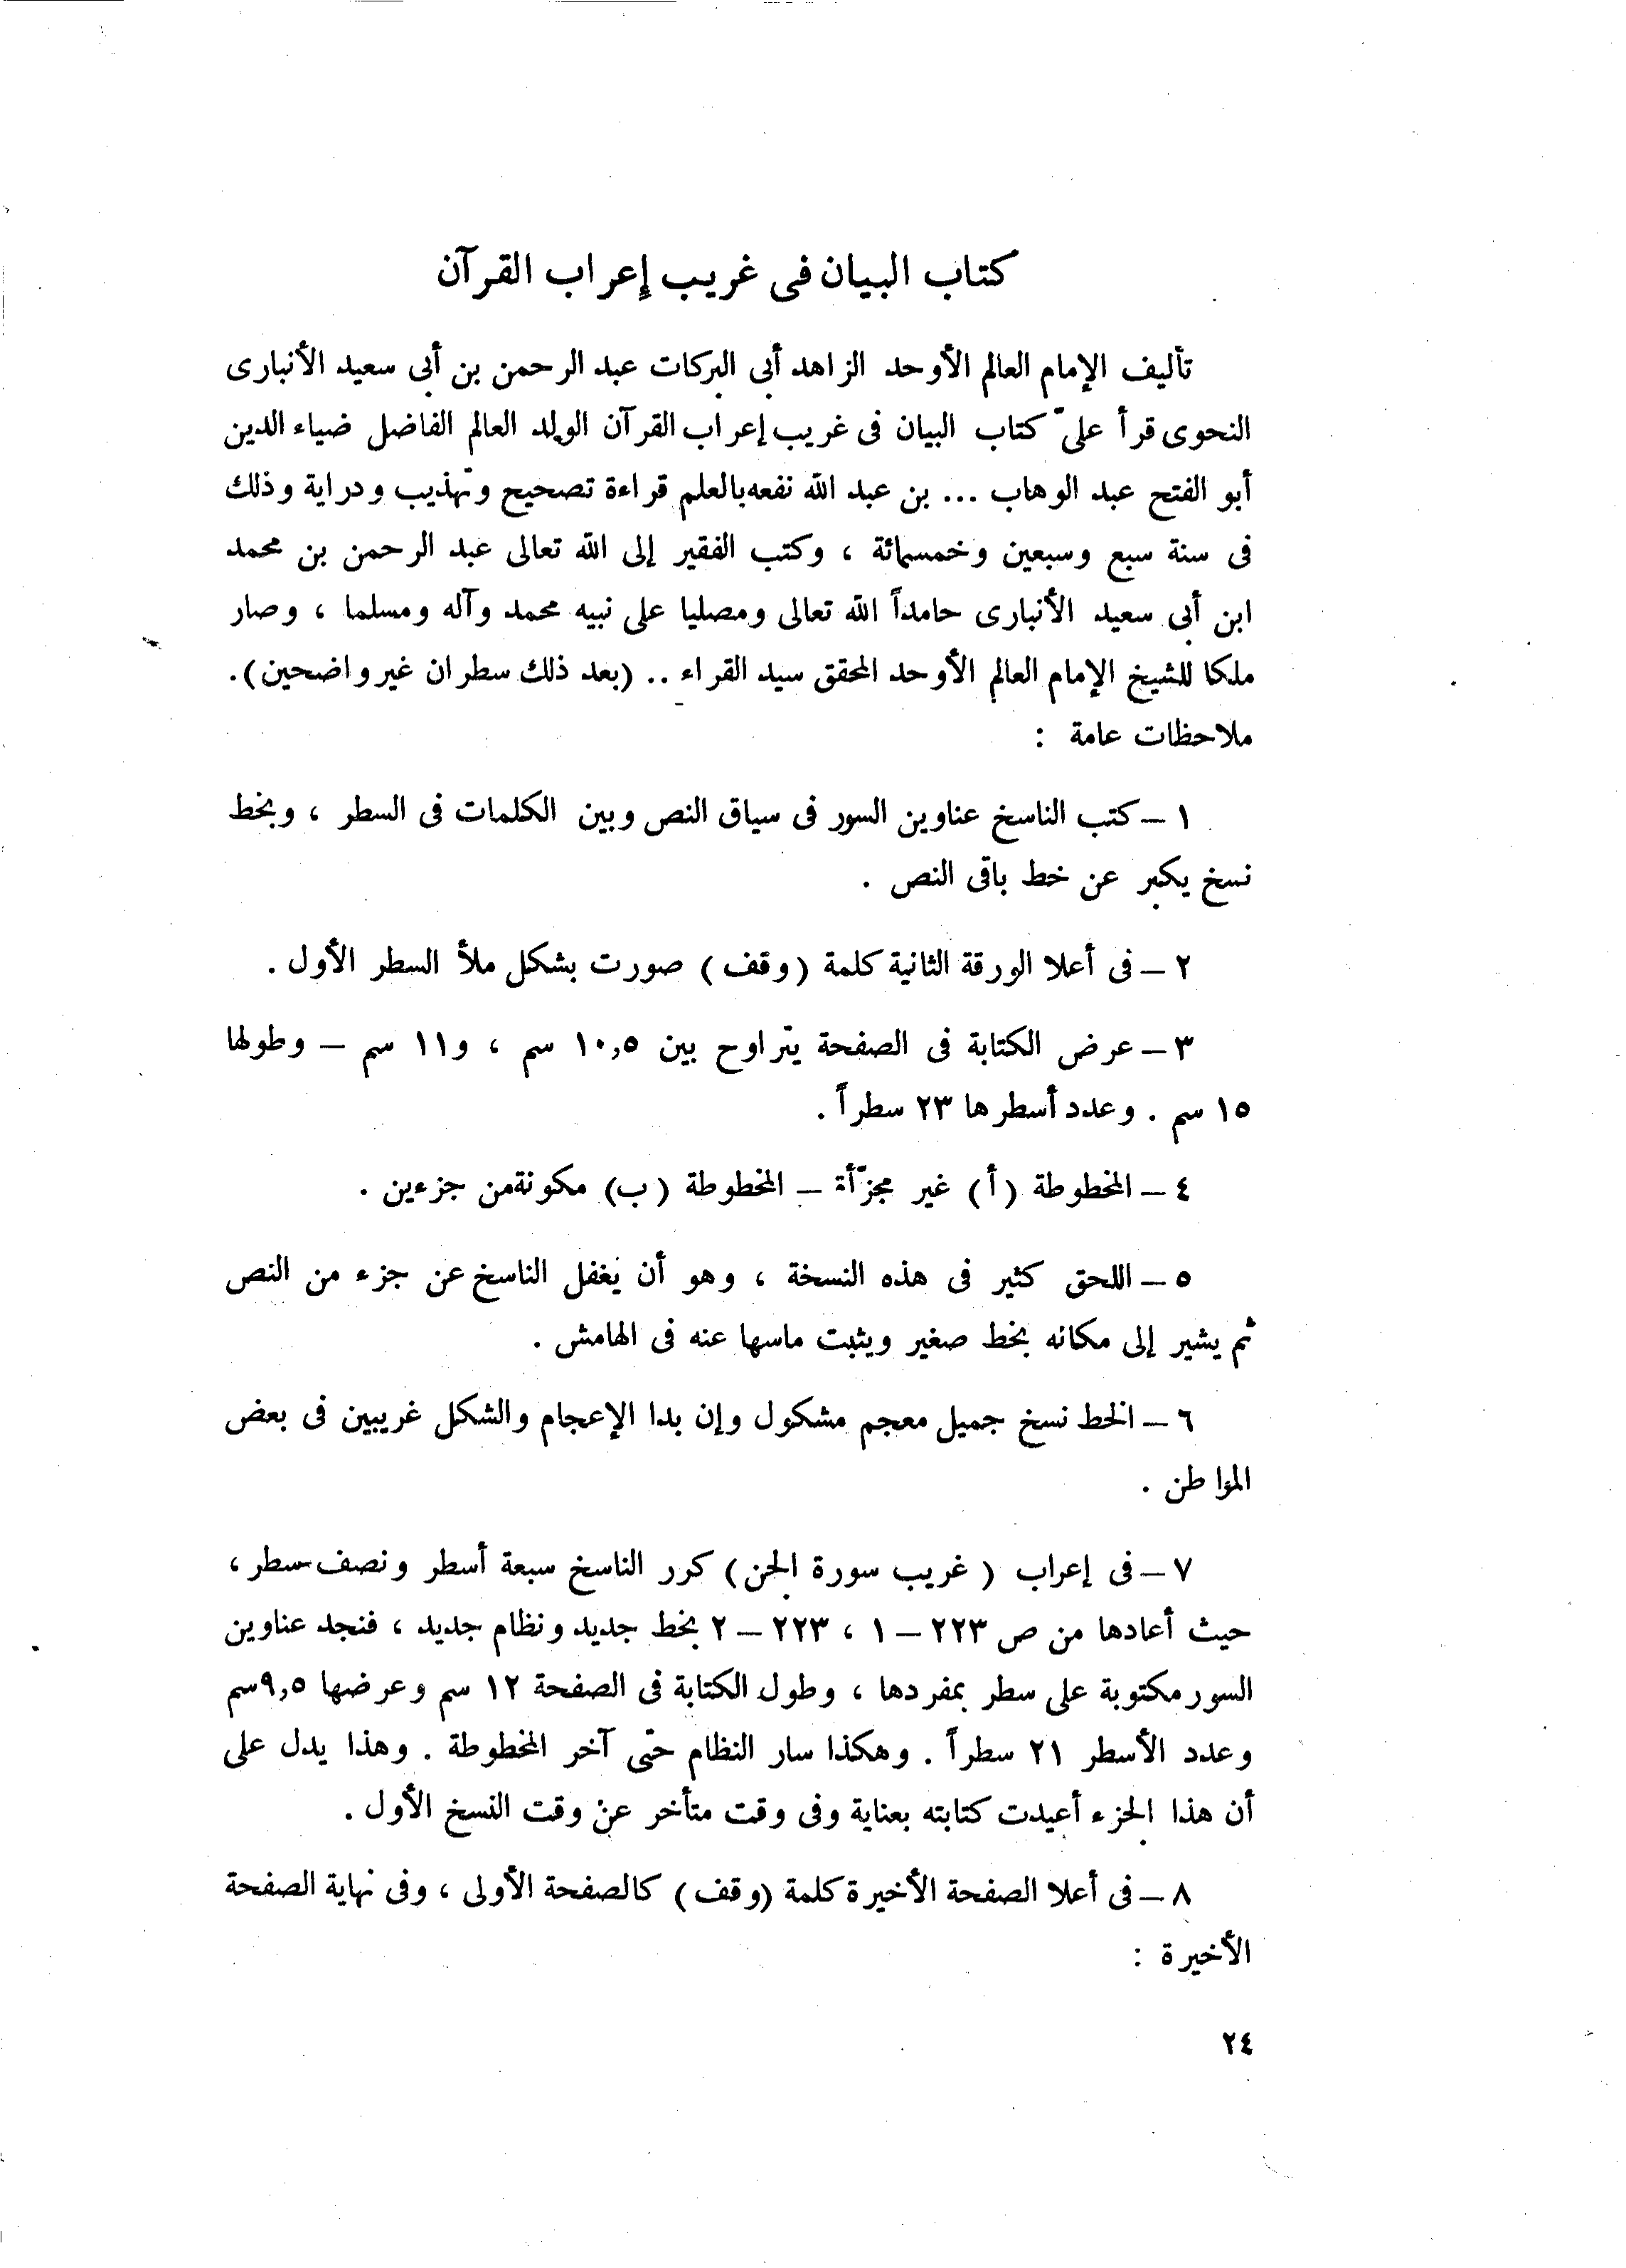 كتاب البيان فى غريب إعراب القرآن
تأليف الإمام العالم الأوحد الزاهد أبى البركات عبد الرحمن بن أبى سعيد الأنبارى
النحوى قرأ علىّ كتاب البيان فى غريب إعراب القرآن الولد العالم الفاضل ضياء الدين
أبو الفتح عبد الوهاب ... بن عبد الله نفعه بالعلم قراءة تصحيح وتهذيب ودراية وذلك
فى سنة سبع وسبعين وخمسمائة ، وكتب الفقير إلى الله تعالى عبد الرحمن بن محمد
ابن أبى سعيد الأنبارى حامداً الله تعالى ومصليا على نبيه محمد وآله ومسلما ، وصار
ملكا للشيخ الإمام العالم الأوحد المحقق سيد القراء .. (بعد ذلك سطران غير واضحين).
ملاحظات عامة :
١ – كتب الناسخ عناوين السور فى سياق النص وبين الكلمات فى السطر ، وبخط
نسخ يكبر عن خط باقى النص .
٢ – فى أعلا الورقة الثانية كلمة (وقف) صورت بشكل ملأ السطر الأول .
٣ – عرض الكتابة فى الصفحة يتراوح بين ١٠,٥ سم ، و١١ سم – وطولها
١٥ سم . وعدد أسطرها ٢٣ سطراً .
٤ – المخطوطة (أ) غير مجزّأة – المخطوطة (ب) مكونة من جزءين .
٥ – اللحق كثير فى هذه النسخة ، وهو أن يغفل الناسخ عن جزء من النص
ثم يشير إلى مكانه بخط صغير ويثبت ماسها عنه فى الهامش .
٦ – الخط نسخ جميل معجم مشكول وإن بدا الإعجام والشكل غريبين فى بعض
المواطن .
٧ – فى إعراب ( غريب سورة الجن) كرر الناسخ سبعة أسطر ونصف سطر ،
حيث أعادها من ص ٢٢٣ – ١ ، ٢٢٣ – ٢ بخط جديد ونظام جديد ، فنجد عناوين
السور مكتوبة على سطر بمفردها ، وطول الكتابة فى الصفحة ١٢ سم وعرضها ٩,٥سم
وعدد الأسطر ٢١ سطراً . وهكذا سار النظام حتى آخر المخطوطة . وهذا يدل على
أن هذا الجزء أعيدت كتابته بعناية وفى وقت متأخر عن وقت النسخ الأول .
٨ – فى أعلا الصفحة الأخيرة كلمة (وقف) كالصفحة الأولى ، وفى نهاية الصفحة
الأخيرة :
٢٤